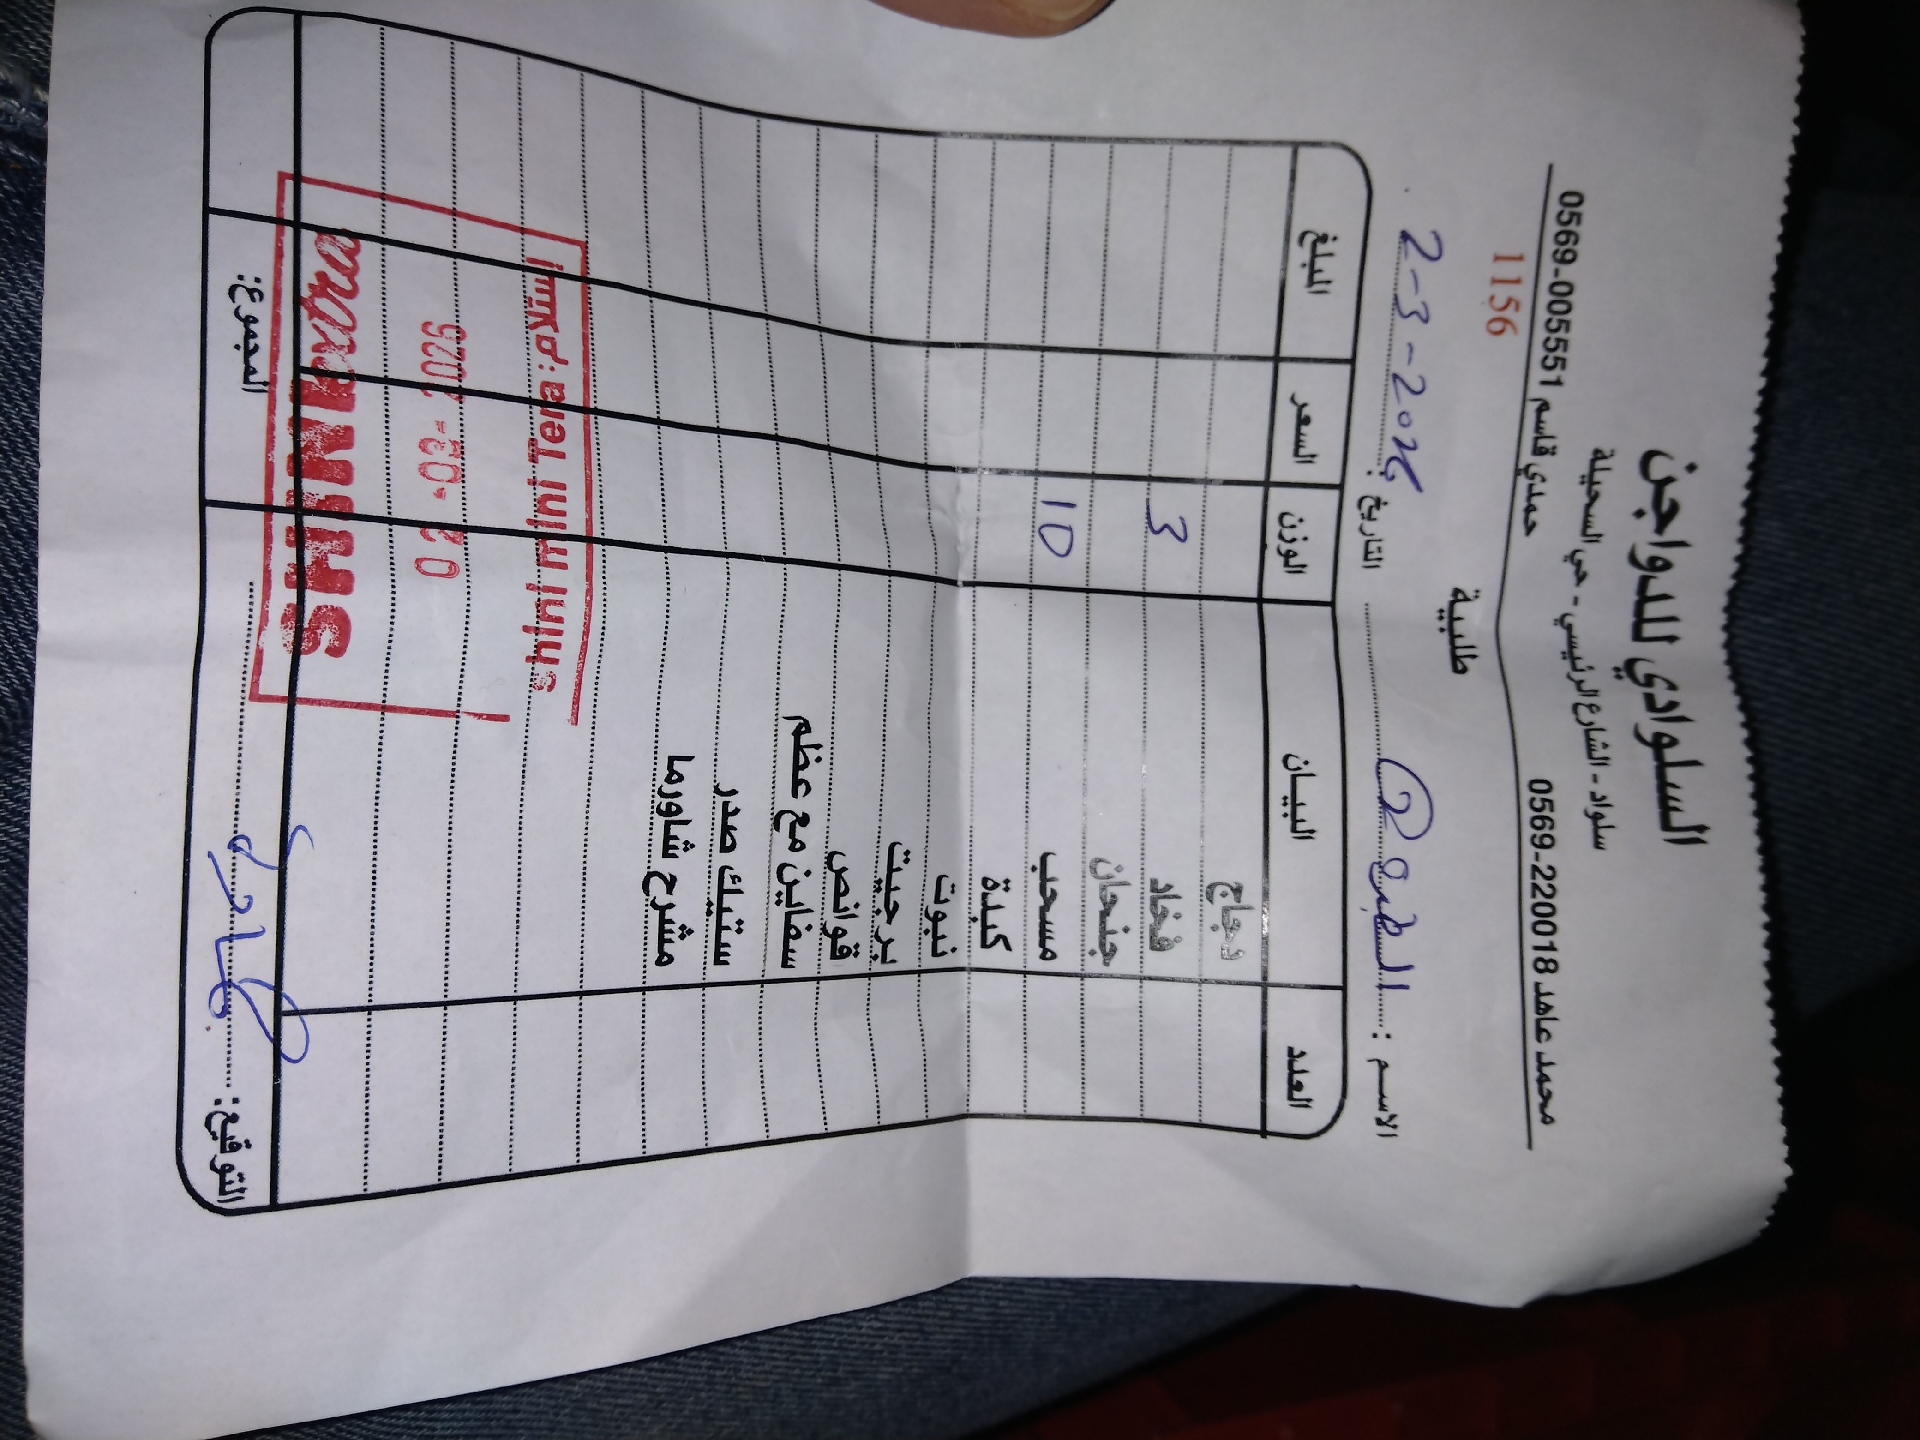 السلوادي للدواجن
سلواد - الشارع الرئيسي - حي السحيلة
محمد عاهد 0569-220018 حمدي قاسم 0569-005551
طلبية
1156
الاسم : التاريخ 2-3-2026
العدد البيان الوزن السعر المبلغ
دجاج
فخاد 3
جنحان
مسحب 10
كبدة
نبوت
برجيت
قوانص
سفاين مع عظم
ستيك صدر
مشرح شاورما
shini mini Tera: استلام
0 2 -03- 2026
SHINI extra
التوقيع: المجموع: